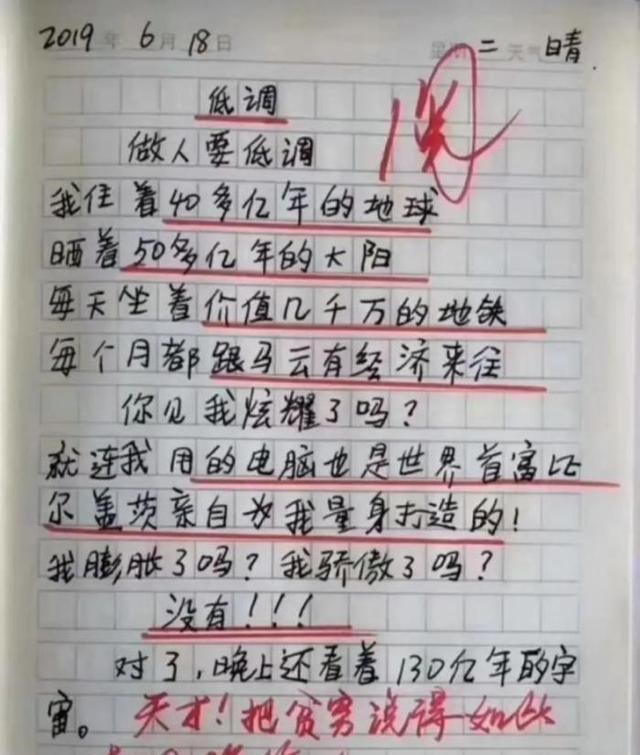 2019年 6月 18日 星期二 天气 晴
阅
低调
做人要低调
我住着40多亿年的地球
晒着50多亿年的太阳
每天坐着价值几千万的地铁
每个月都跟马云有经济来往
你见我炫耀了吗?
就连我用的电脑也是世界首富比
尔盖茨亲自为我量身打造的!
我膨胀了吗?我骄傲了吗?
没有!!!
对了,晚上还看着130亿年的宇
宙。天才!把贫穷说得如此